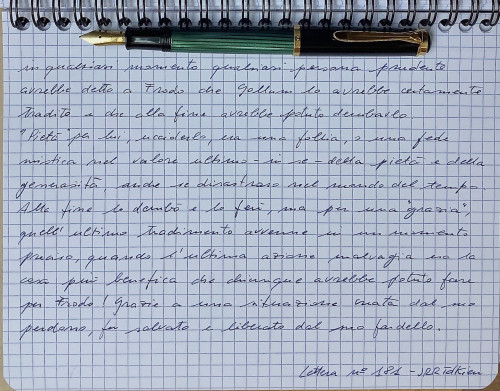 in qualsiasi momento qualsiasi persona prudente
avrebbe detto a Frodo che Gollum lo avrebbe certamente
tradito e che alla fine avrebbe potuto derubarlo.
"Pietà" per lui, ucciderlo, era una follia, o una fede
mistica nel valore ultimo - in se - della pietà e della
generosità, anche se disastroso nel mondo del tempo.
Alla fine lo derubò e lo ferì, ma per una "grazia",
quell'ultimo tradimento avvenne in un momento
preciso, quando l'ultima azione malvagia era la
cosa più benefica che chiunque avrebbe potuto fare
per Frodo! Grazie a una situazione creata dal suo
perdono, fu salvato e liberato dal suo fardello.
Lettera n° 181 - JRRTolkien